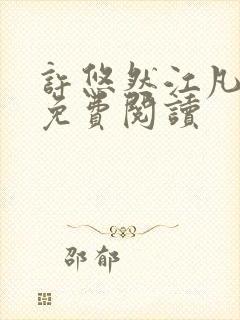 許悠然江凡
免費閱讀
邵郁